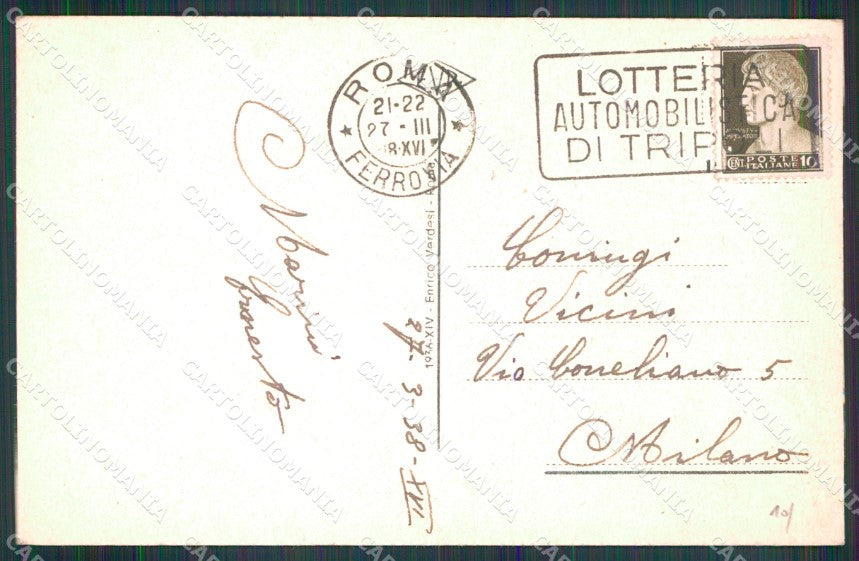 ROMA
21-22
27 - III
38·XVI
FERROVIA
LOTTERIA
AUTOMOBILISTICA
DI TRIPOLI
POSTE
ITALIANE
CENT. 10
1936-XIV - Enrico Verdesi - Roma
27. 3-38-XVI
Coniugi
Vicini
Via Conegliano 5
Milano
10/
CARTOLINOMANIA